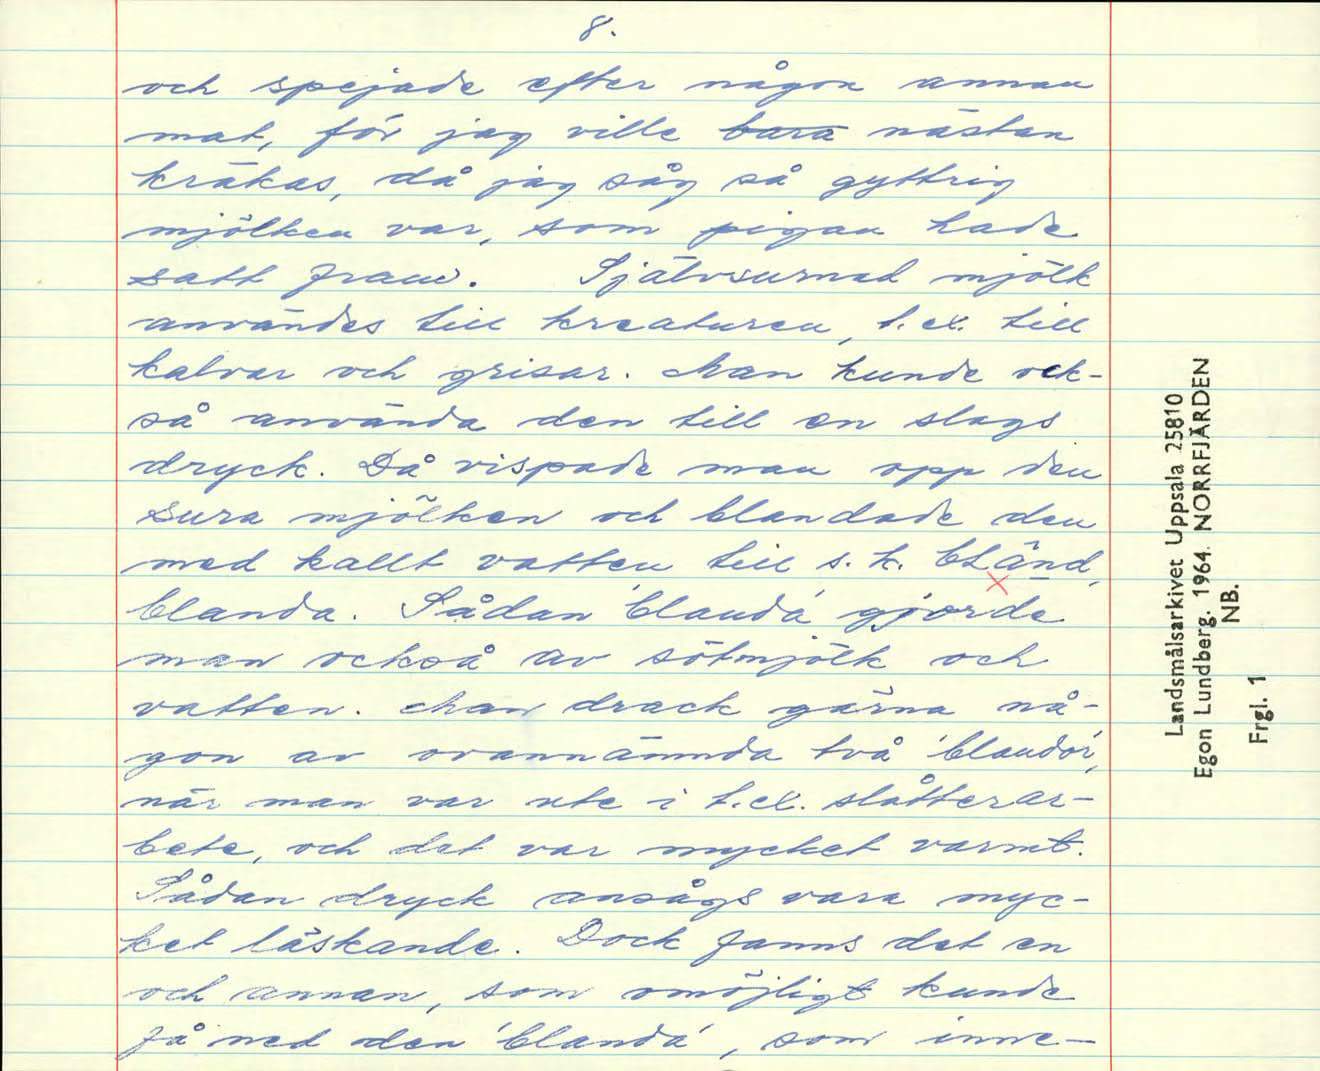 8.
och spejade efter någon annan
mat, för jag ville bara nästan
kräkas, då jag såg så gyttrig
mjölken var, som pigan hade
satt fram. Självsurnad mjölk
användes till kreaturen, t.ex. till
kalvar och grisar. Man kunde ock-
så använda den till en slags
dryck. Då vispade man opp den
sura mjölken och blandade den
med kallt vatten till s.k. bländ,
blanda. Sådan 'blanda' gjorde
man också av sötmjölk och
vatten. Man drack gärna nå-
gon av ovannämnda två 'blandor',
när man var ute i t.ex. slåtterar-
bete, och det var mycket varmt.
Sådan dryck ansågs vara myc-
ket läskande. Dock fanns det en
och annan, som omöjligt kunde
få ned den 'blanda', som inne-
Landsmålsarkivet Uppsala 25810
Egon Lundberg. 1964. NORRFJÄRDEN
NB.
Frgl. 1